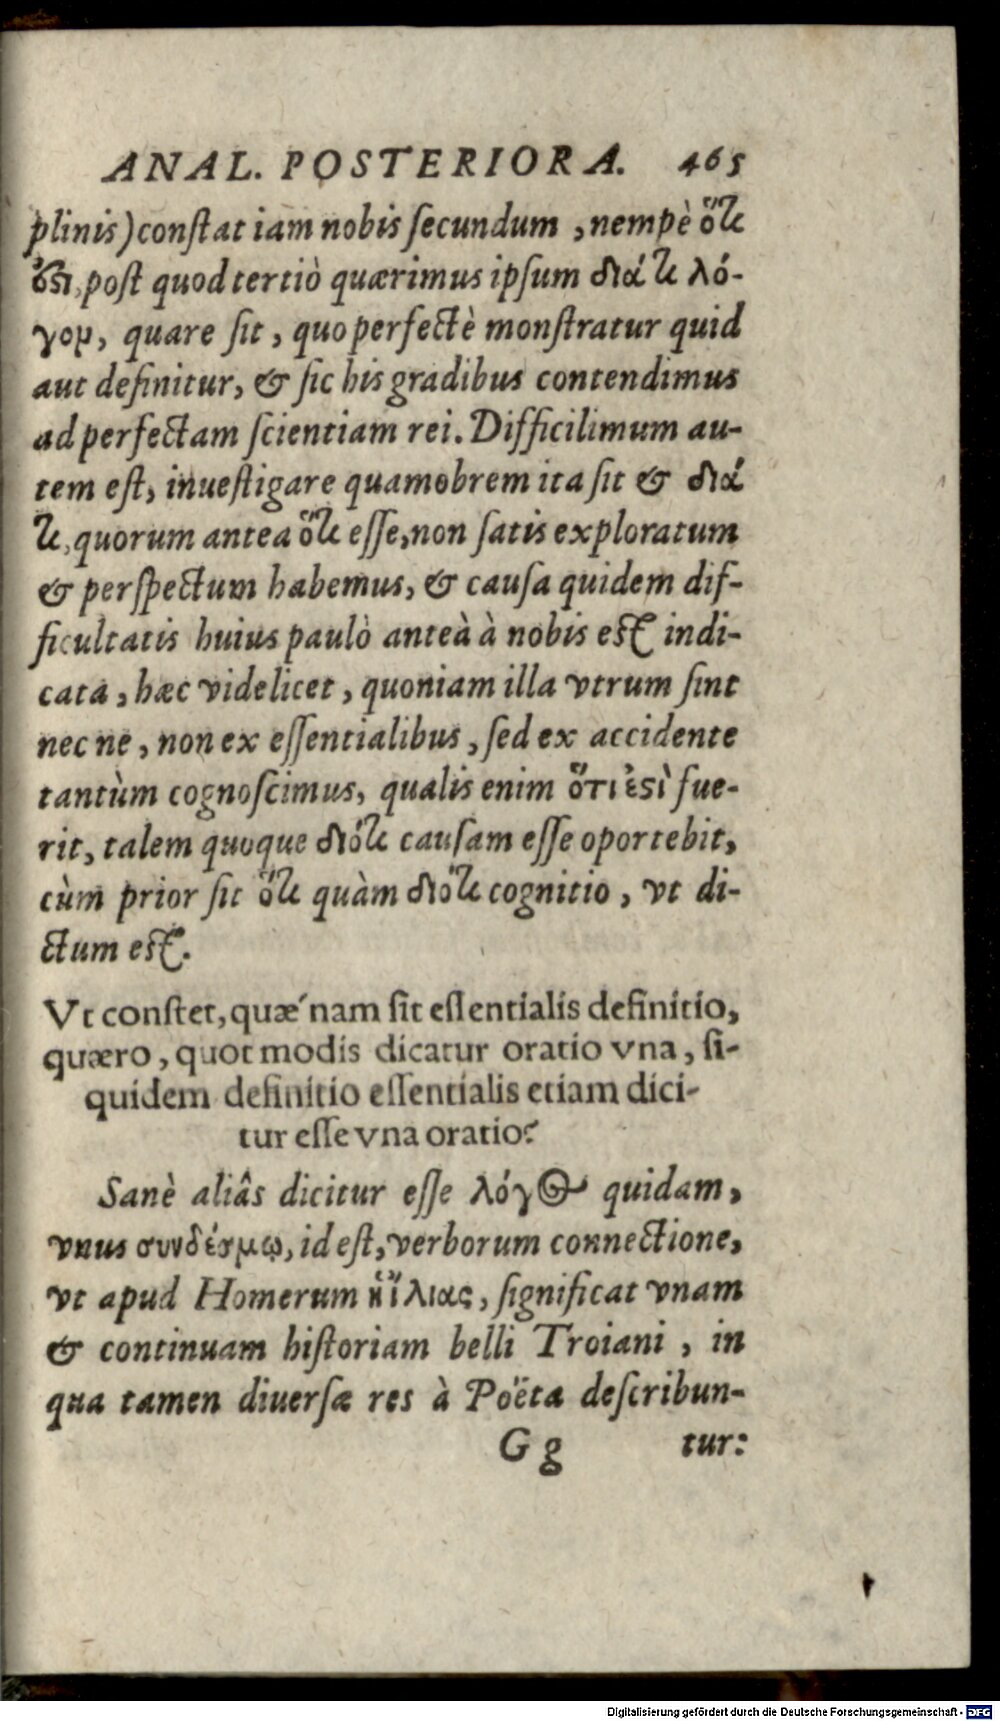 ANAL. POSTERIORA. 465
plinis) constat iam nobis secundum, nempè ὅτι
ὅτι, post quod tertiò quærimus ipsum διά τι λό-
γον, quare sit, quo perfectè monstratur quid
aut definitur, & sic his gradibus contendimus
ad perfectam scientiam rei. Difficilimum au-
tem est, inuestigare quamobrem ita sit & διά
τι, quorum antea ὅτι esse, non satis exploratum
& perspectum habemus, & causa quidem dif-
ficultatis huius paulò anteà à nobis est indi-
cata, hæc videlicet, quoniam illa vtrum sint
nec ne, non ex essentialibus, sed ex accidente
tantùm cognoscimus, qualis enim ὅτι ἐστὶ fue-
rit, talem quoque διότι causam esse oportebit,
cùm prior sit ὅτι quàm διότι cognitio, vt di-
ctum est.
Vt constet, quæ´nam sit essentialis definitio,
quæro, quot modis dicatur oratio vna, si-
quidem definitio essentialis etiam dici-
tur esse vna oratio?
Sanè aliâs dicitur esse λόγος quidam,
vnus συνδέσμῳ, id est, verborum connectione,
vt apud Homerum ἡ ἴλιας, significat vnam
& continuam historiam belli Troiani, in
qua tamen diuersæ res à Poëta describun-
Gg tur:
Digitalisierung gefördert durch die Deutsche Forschungsgemeinschaft - DFG